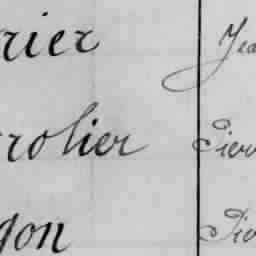 rier Jea
rolier Pierr
gon Pier